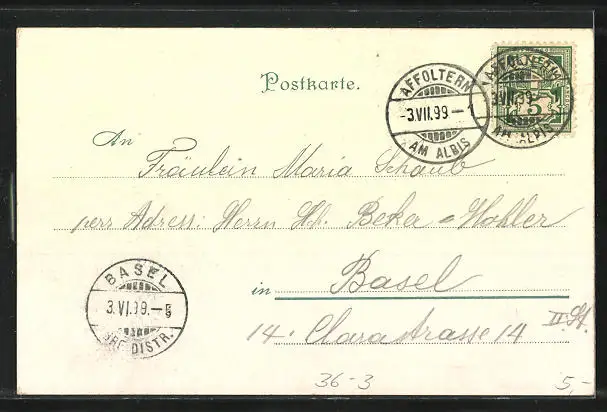 Postkarte.
AFFOLTERN
-3.VII.99.-1
AM ALBIS
AFFOLTERN
-3.VII.99.-1
AM ALBIS
5
An
Fräulein Maria Schaub
per Adress: Herrn Hch. Beka-Wohler
BASEL
3.VI.99.-5
BRF. DISTR.
in Basel
14. Clarastrasse 14 II. St.
36-3
5,-